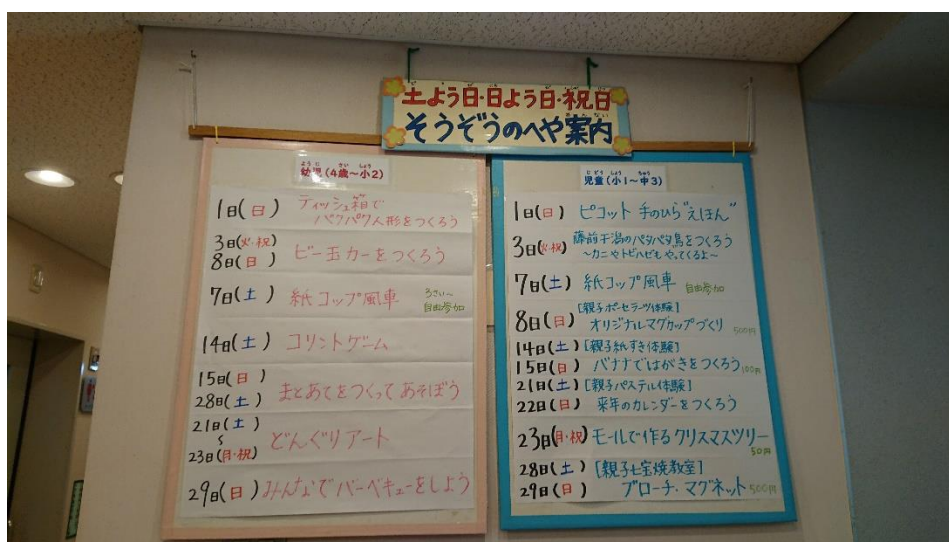 土よう日・日よう日・祝日
そうぞうのへや案内
幼児(4歳~小2)
1日(日) ティッシュ箱で
パクパク人形をつくろう
3日(火・祝)
8日(日) ビー玉カーをつくろう
7日(土) 紙コップ風車 3さい~
自由参加
14日(土) コリントゲーム
15日(日)
28日(土) まとあてをつくってあそぼう
21日(土)
~
23日(月・祝) どんぐりアート
29日(日) みんなでバーベキューをしよう
児童(小1~中3)
1日(日) ピコット 手のひら"えほん"
3日(火・祝) 藤前干潟のパタパタ鳥をつくろう
~カニやトビハゼもやってくるよ~
7日(土) 紙コップ風車 自由参加
8日(日) [親子ポーセラーツ体験]
オリジナルマグカップづくり 500円
14日(土) [親子紙すき体験]
15日(日) バナナではがきをつくろう 100円
21日(土) [親子パステル体験]
22日(日) 来年のカレンダーをつくろう
23日(月・祝) モールで作るクリスマスツリー
50円
28日(土) [親子七宝焼教室]
29日(日) ブローチ・マグネット 500円